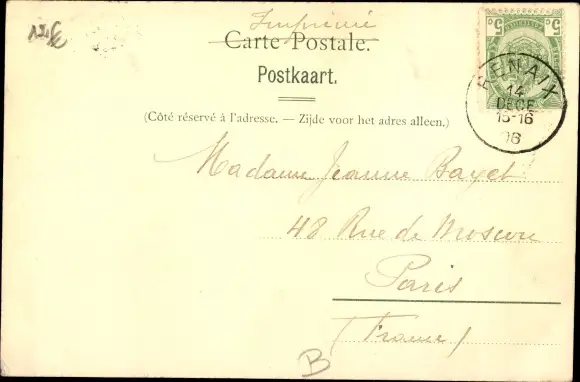 Imprimé
Carte Postale.
Postkaart.
(Côté réservé à l'adresse. — Zijde voor het adres alleen.)
Madame Jeanne Bayet
48 Rue de Moscou
Paris
(France)
B
5 5
RENAIX
14
DECE
15-16